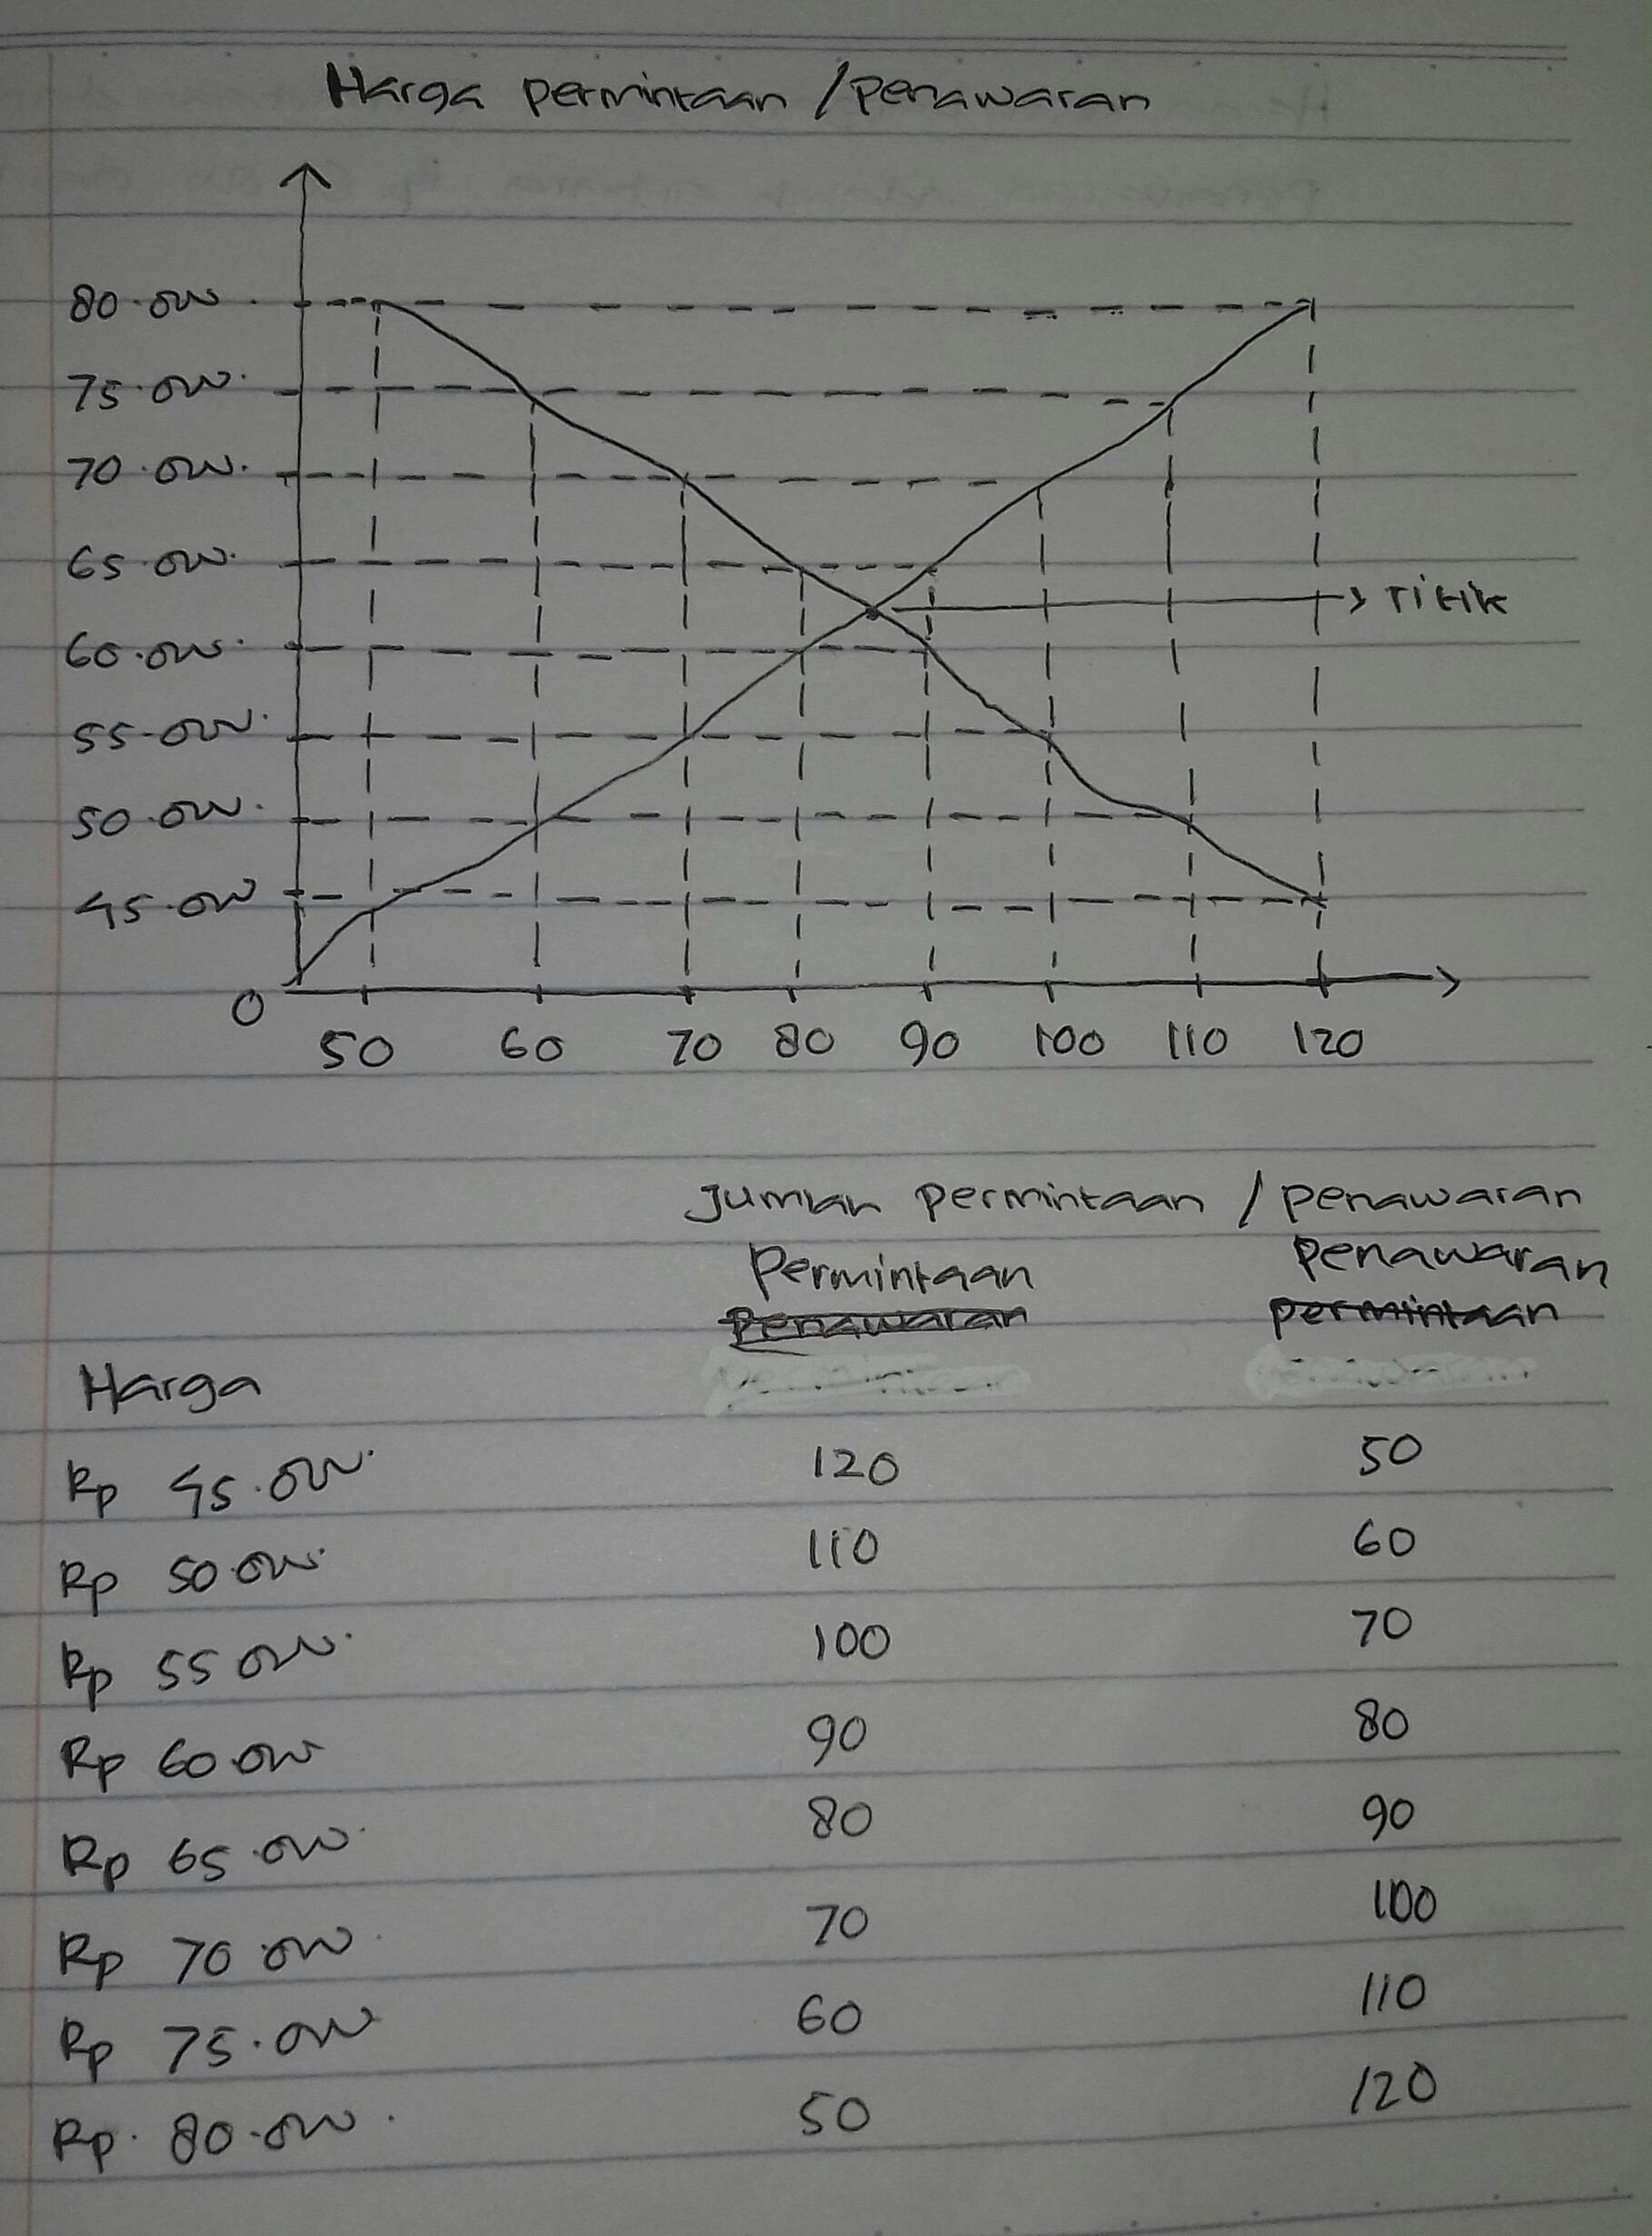 Harga permintaan / penawaran
80.000
75.000
70.000
65.000
60.000
55.000
50.000
45.000
Titik
0
50 60 70 80 90 100 110 120
Jumlah permintaan / penawaran
Permintaan Penawaran
Penawaran permintaan
Harga
Rp 45.000 120 50
Rp 50.000 110 60
Rp 55.000 100 70
Rp 60.000 90 80
Rp 65.000 80 90
Rp 70.000 70 100
Rp 75.000 60 110
Rp. 80.000 50 120